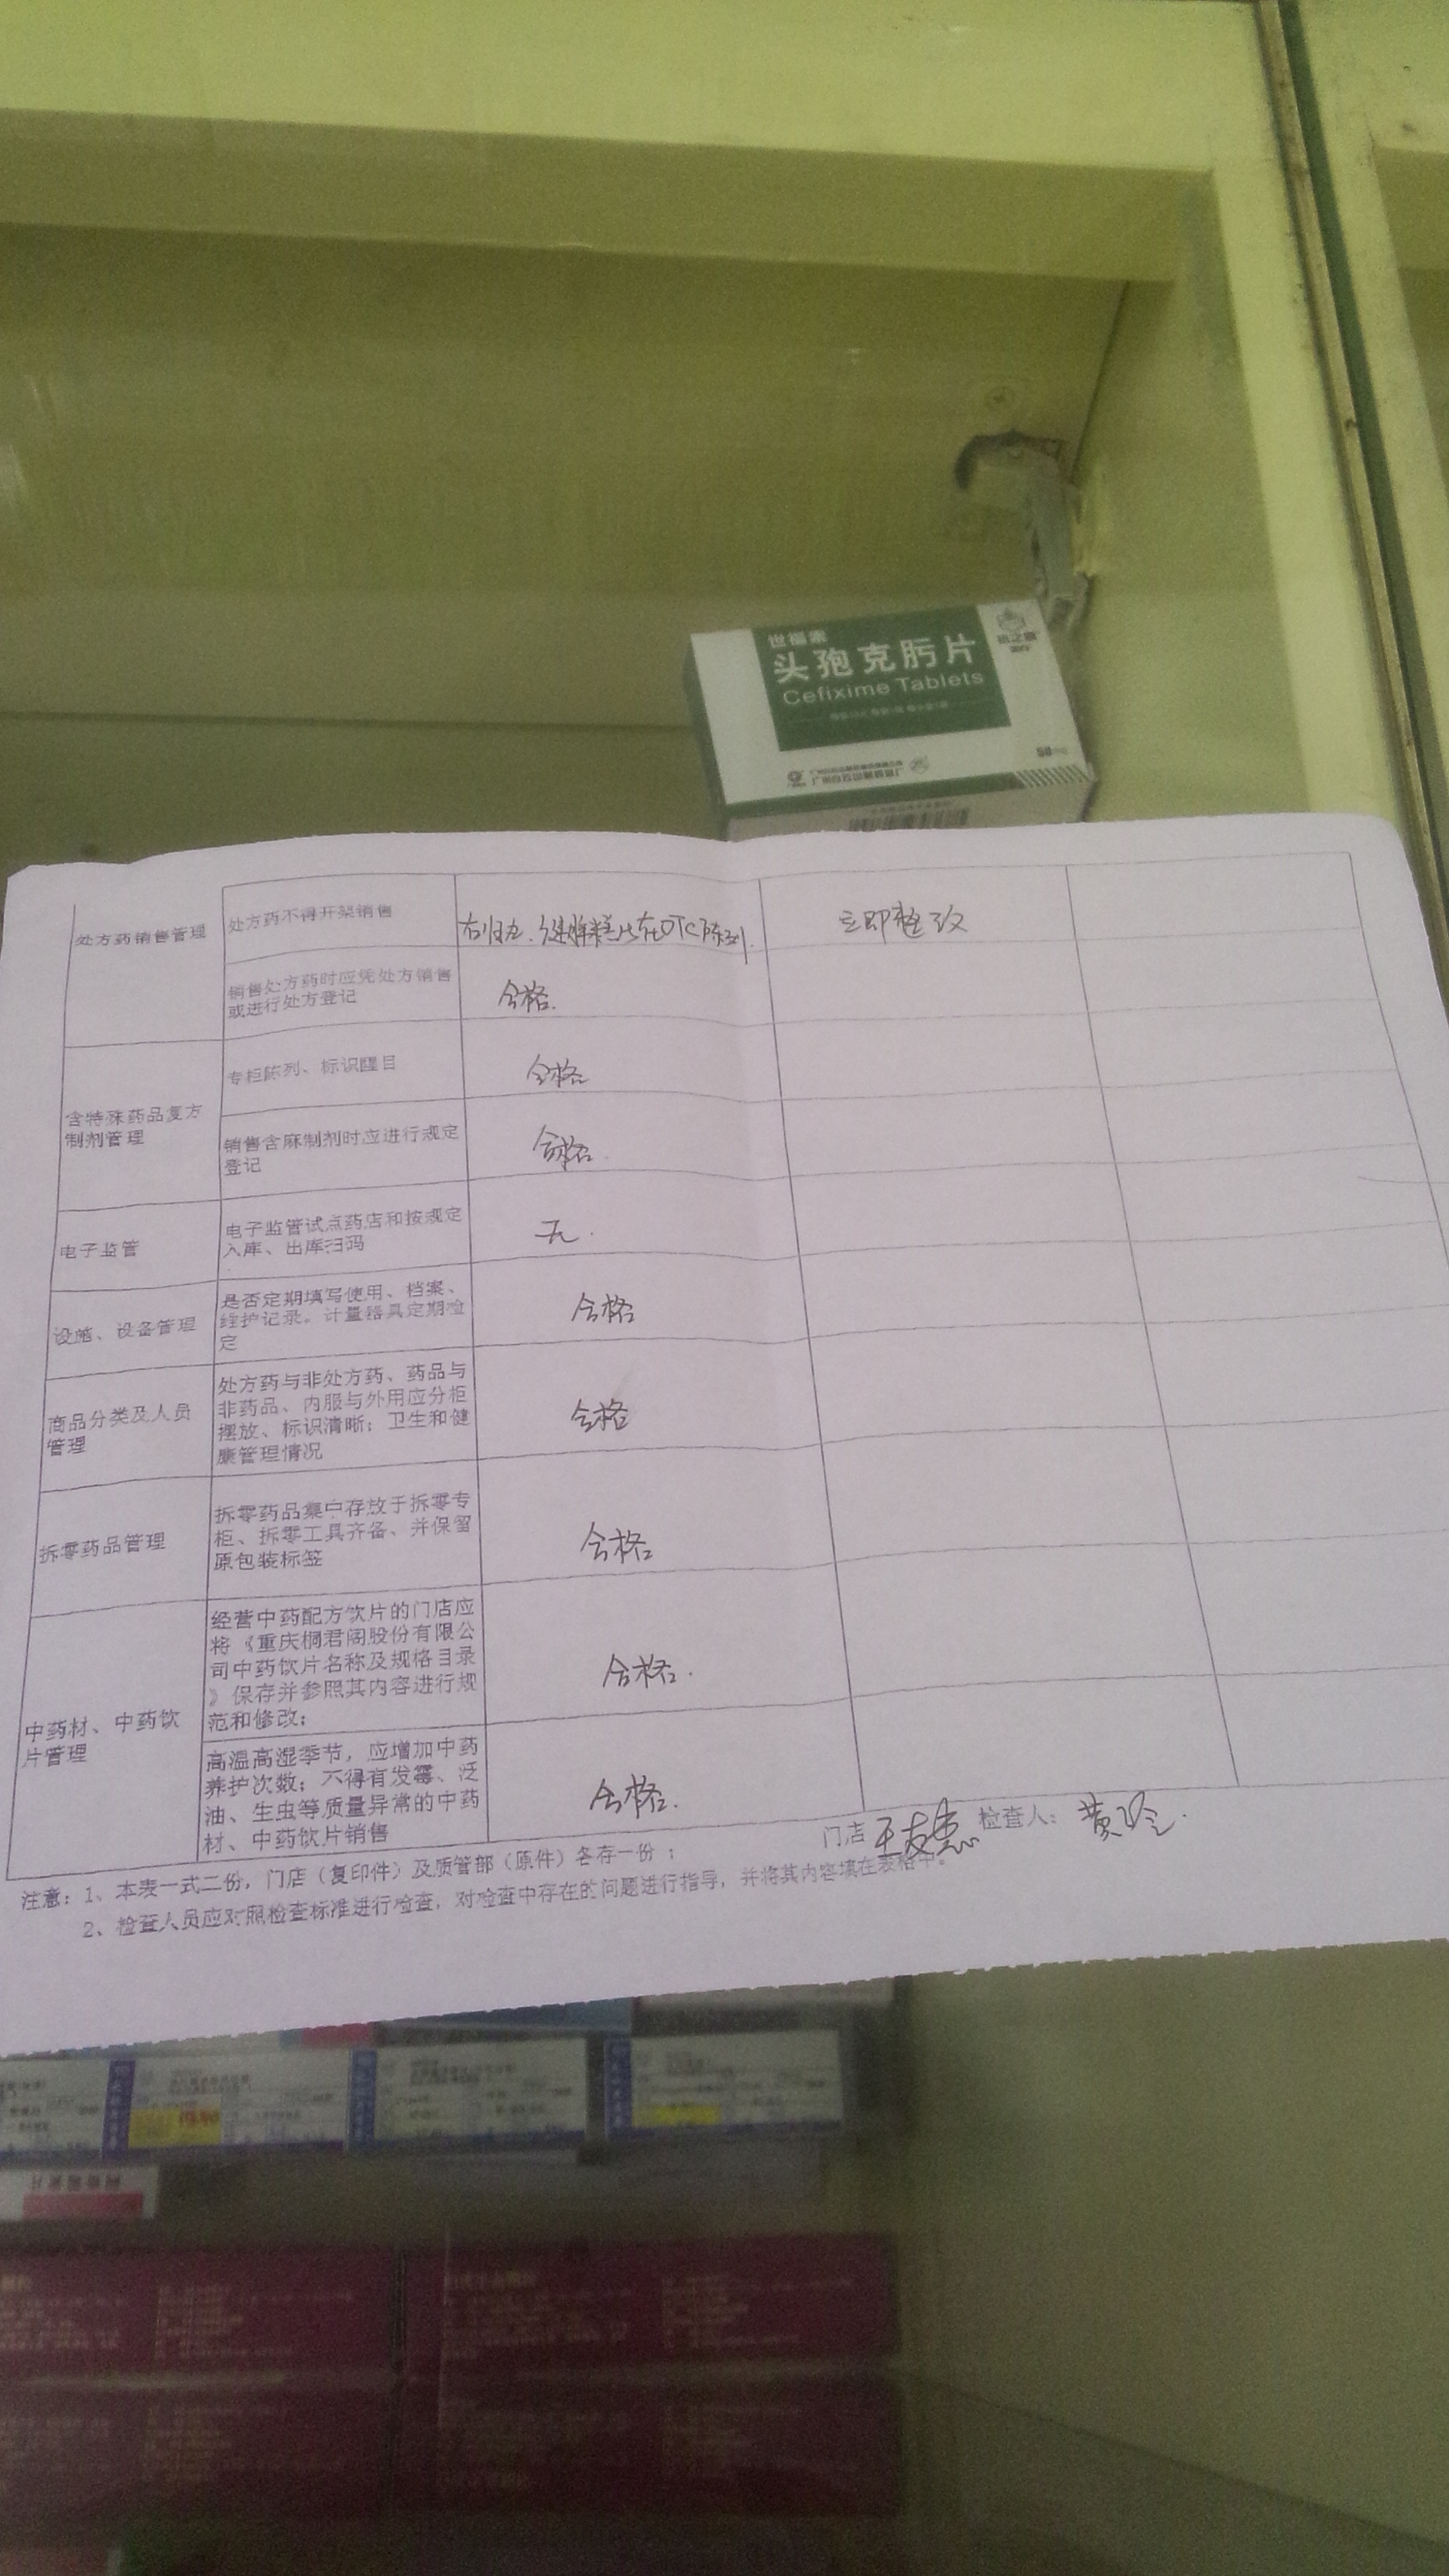 世福素
头孢克肟片
Cefixime Tablets
50mg
处方药销售管理
处方药不得开架销售
在OTC陈列.
立即整改
销售处方药时应凭处方销售
或进行处方登记
合格.
含特殊药品复方
制剂管理
专柜陈列、标识醒目
合格
销售含麻制剂时应进行规定
登记
合格.
电子监管
电子监管试点药店和按规定
入库、出库扫码
无.
设施、设备管理
是否定期填写使用、档案、
维护记录。计量器具定期检
定
合格
商品分类及人员
管理
处方药与非处方药、药品与
非药品、内服与外用应分柜
摆放、标识清晰；卫生和健
康管理情况
合格
拆零药品管理
拆零药品集中存放于拆零专
柜、拆零工具齐备、并保留
原包装标签
合格
中药材、中药饮
片管理
经营中药配方饮片的门店应
将《重庆桐君阁股份有限公
司中药饮片名称及规格目录
》保存并参照其内容进行规
范和修改；
合格.
高温高湿季节，应增加中药
养护次数；不得有发霉、泛
油、生虫等质量异常的中药
材、中药饮片销售
合格.
门店 王友惠 检查人： 黄玲.
注意：1、本表一式二份，门店（复印件）及质管部（原件）各存一份；
2、检查人员应对照检查标准进行检查，对检查中存在的问题进行指导，并将其内容填在表格中。